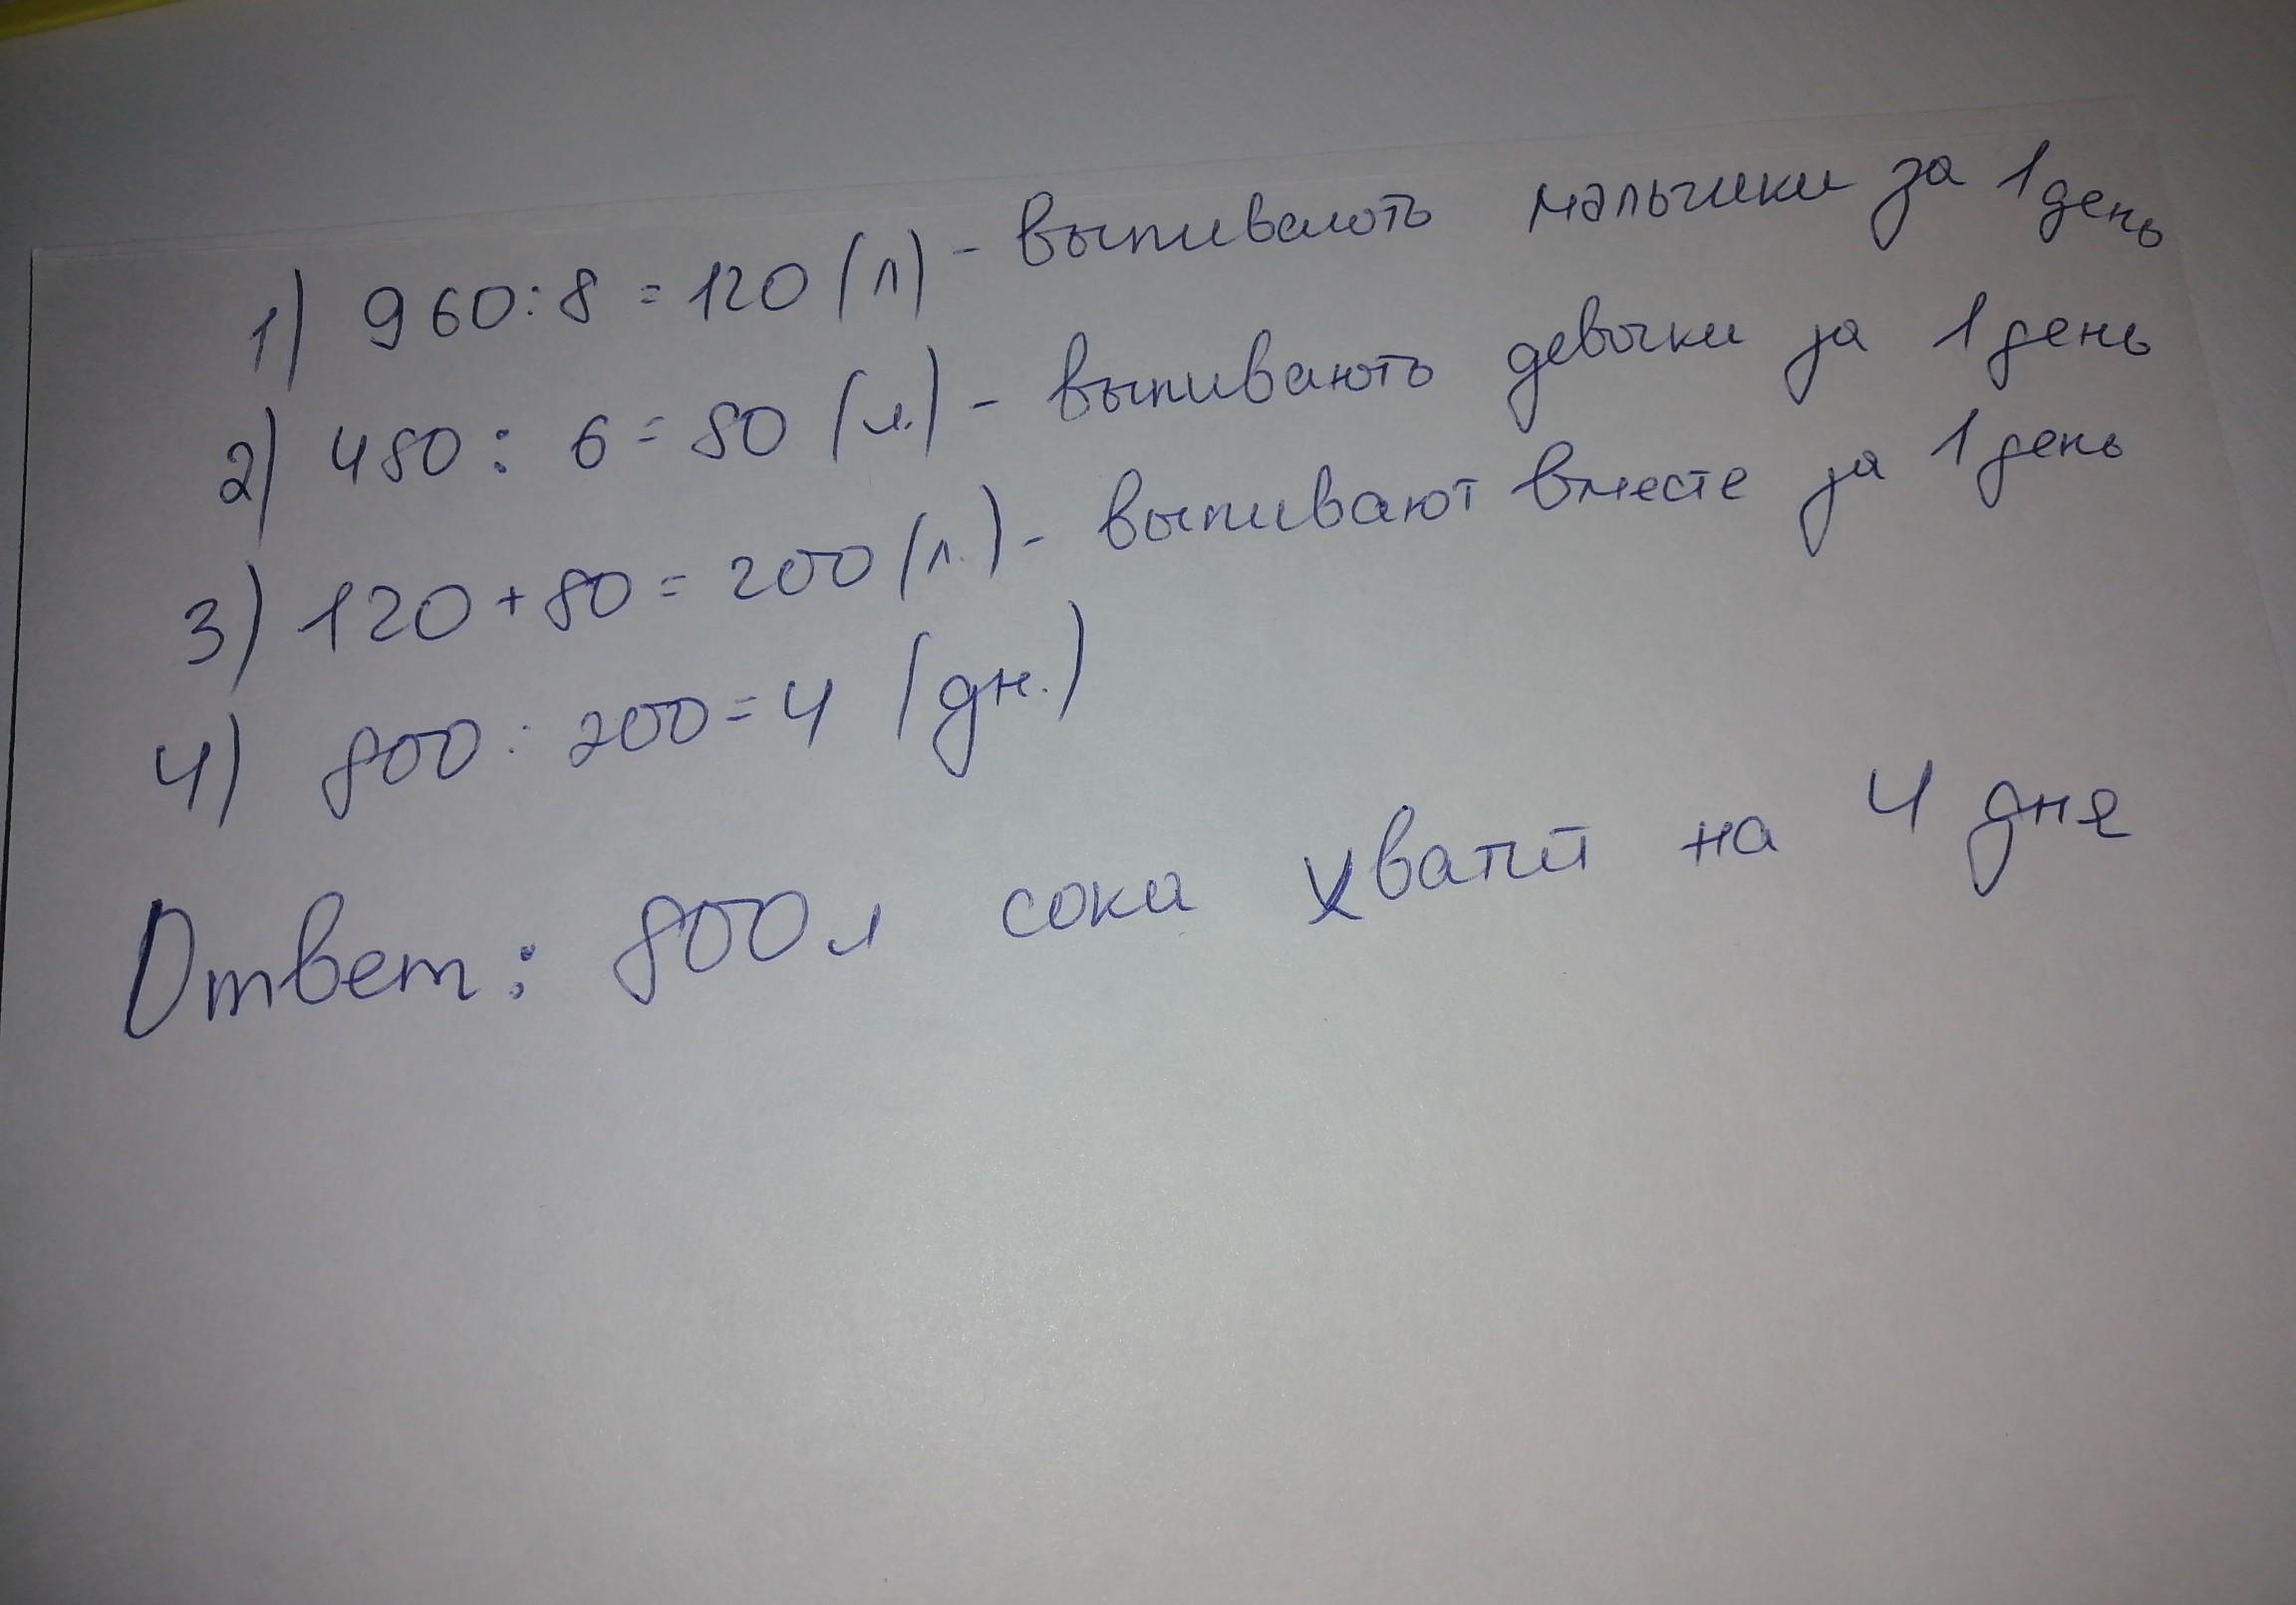 1) 960:8 = 120 (л) - выпивають мальчики за 1 день
2) 480 : 6 = 80 (л.) - выпивають девочки за 1 день
3) 120 + 80 = 200 (л.) - выпивают вместе за 1 день
4) 800 : 200 = 4 (дн.)
Ответ: 800 л сока хватит на 4 дня